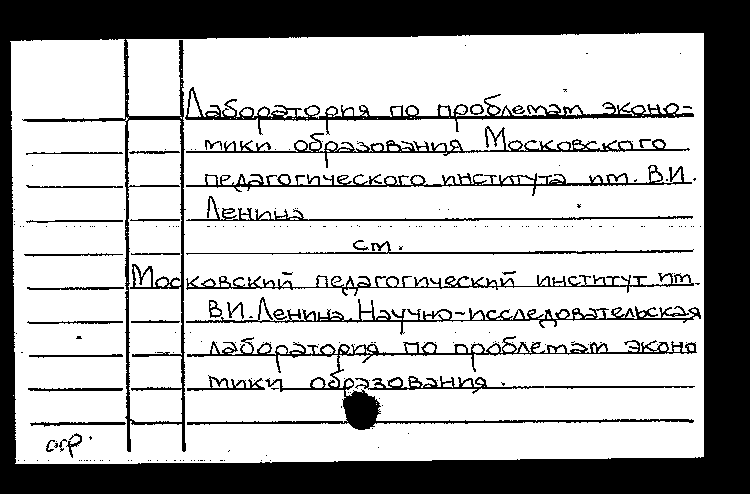 Лаборатория по проблемам эконо-
мики образования Московского
педагогического института им. В.И.
Ленина
см.
Московский педагогический институт им.
В.И. Ленина. Научно-исследовательская
лаборатория по проблемам эконо
мики образования.